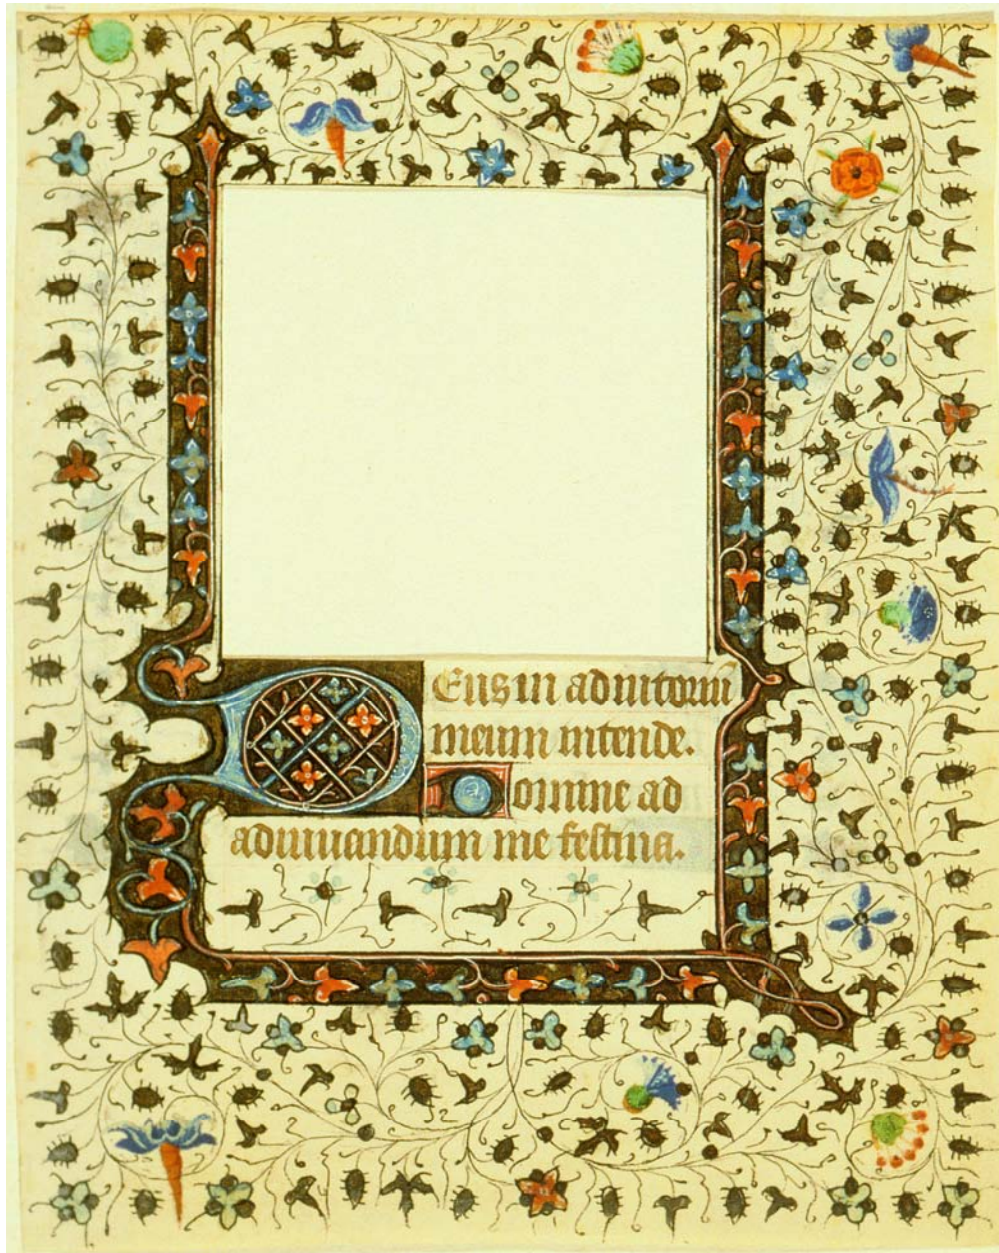 Deus in adiutoriu̅
meum intende.
Domine ad
adiuuandum me festina.